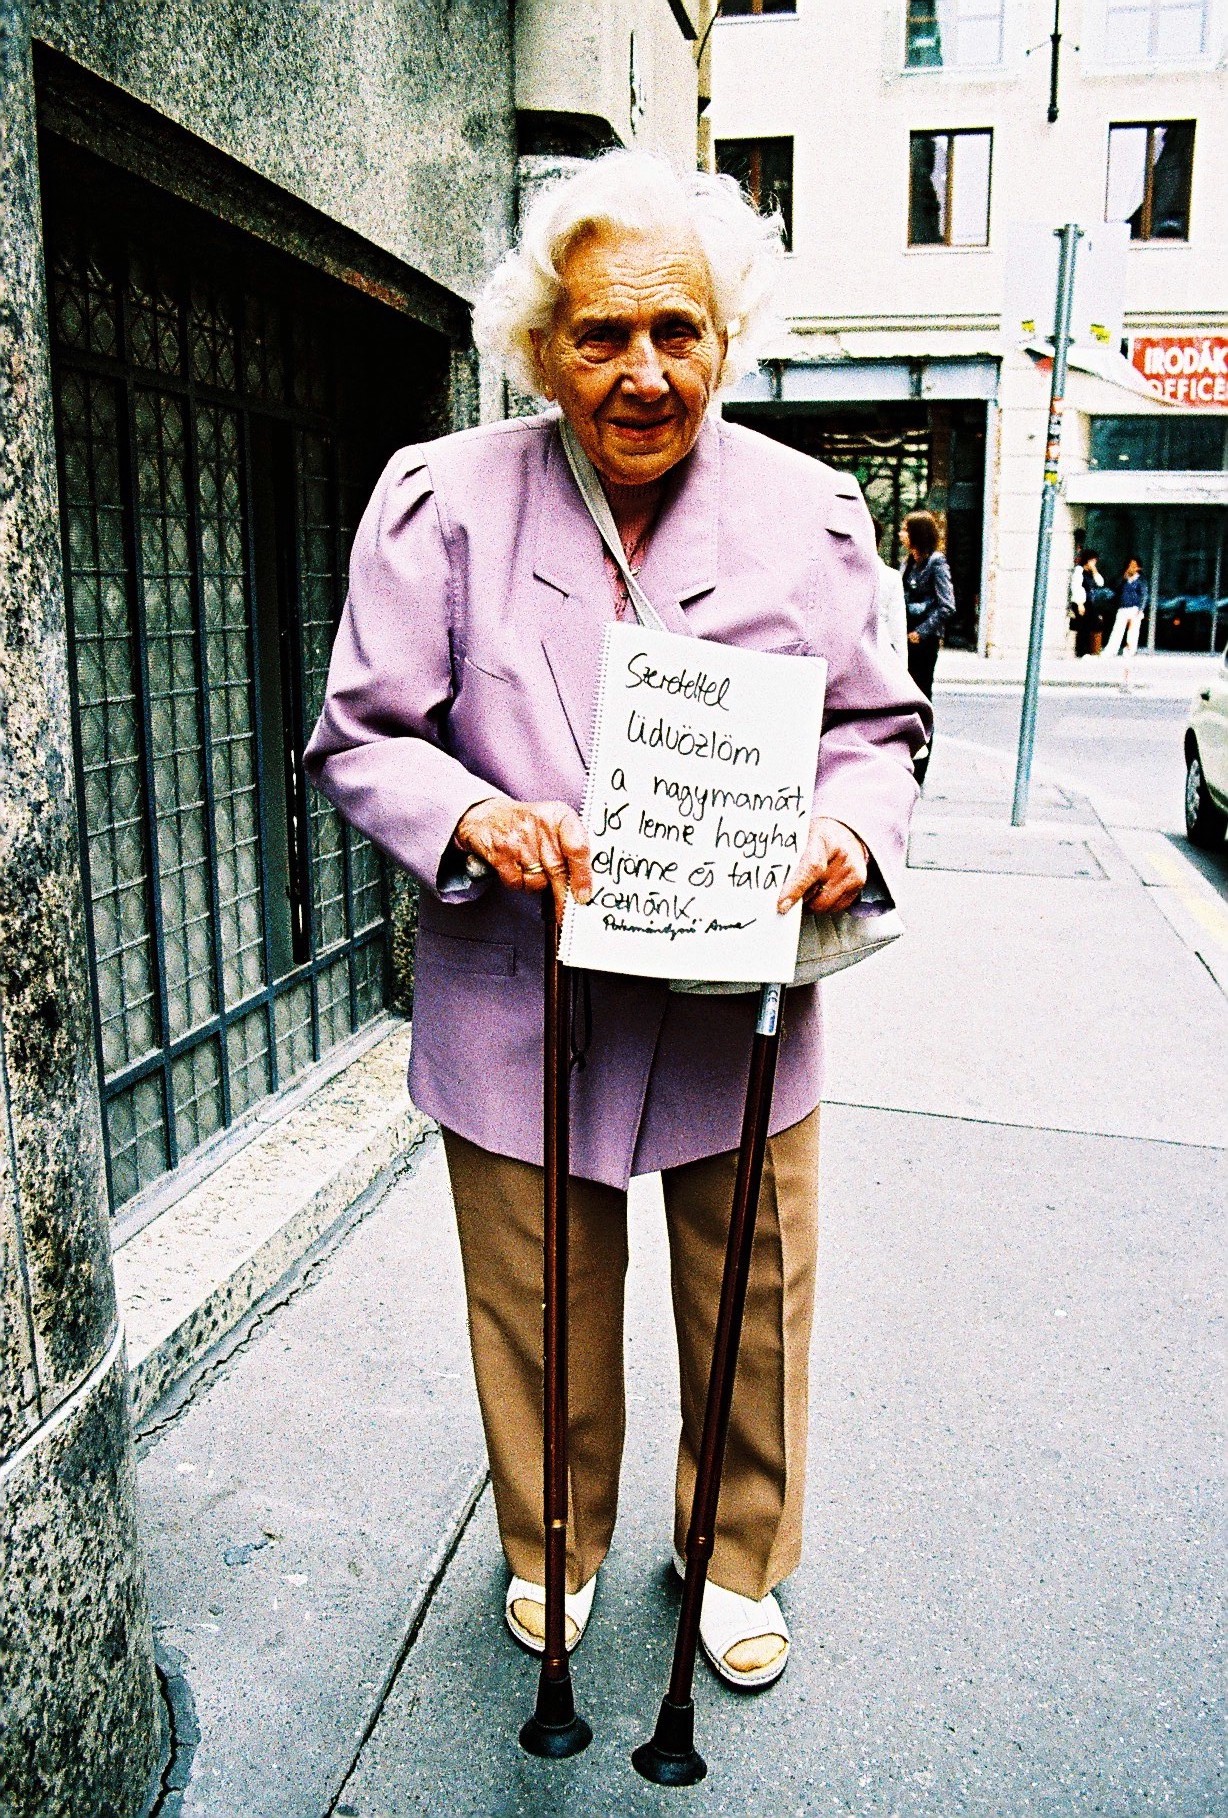 Szeretettel
Üdvözlöm
a nagymamát,
jó lenne hogyha
eljönne és talál
koznánk.
Anna
IRODÁK
OFFICE